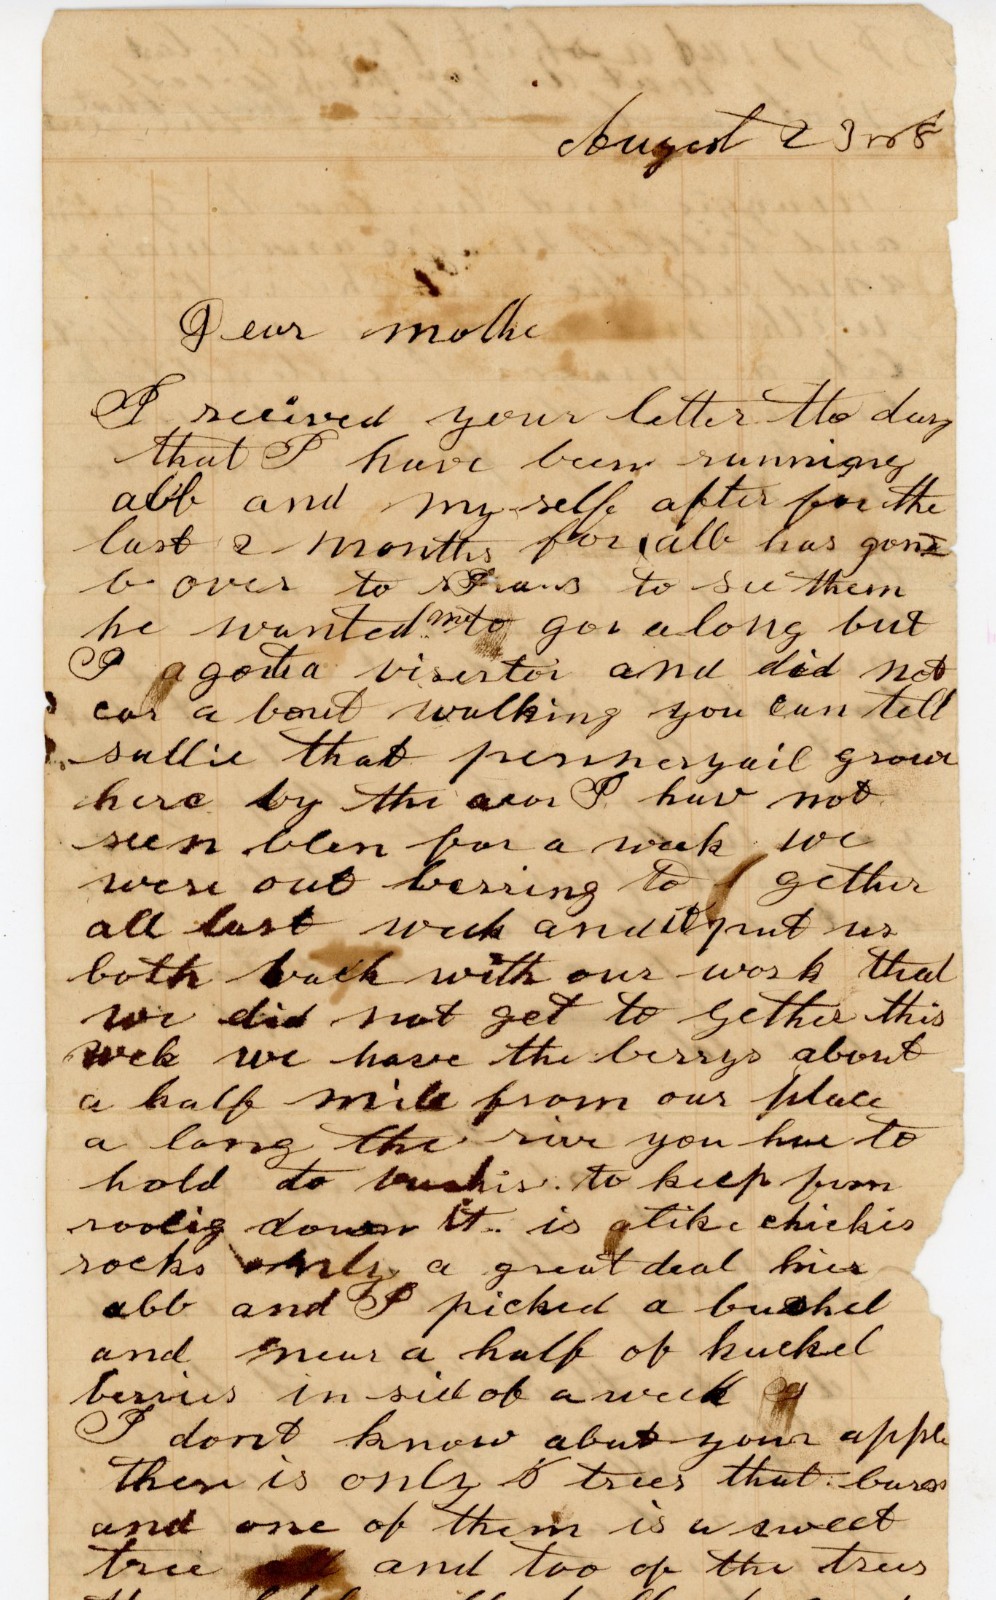 August 23rd 8
Dear mothe
I recived your letter the day
that I have been running
abb and my self after for the
last 2 months for abb has gone
b over to to see them
he wanted me to go along but
I got a visertor and did not
car a bout walking you can tell
sallie that penneryail grows
here by the acor I hav not
seen blen for a week we
were out berring to gether
all last week and it put us
both back with our work that
we did not get to gether this
wek we have the berrys about
a half mile from our place
a long the rive you hae to
hold to bushis to keep from
roolig down it is like chickis
rocks only a great deal hier
abb and I picked a bushel
and near a half of huckel
berries in sid of a week
I dont know about your apple
there is only 5 trees that bares
and one of them is a sweet
tree and too of the trees